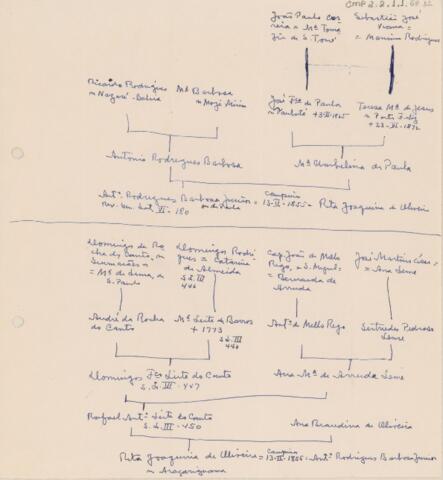 CMP 2.2.1.1.
João Paulo Cor
reia = Mª Tomá
zia de S. Tomé
Sebastião José
Viana =
= Maurina Rodrigues
Ricardo Rodrigues
n Nazaré-Bahia
Mª Barbosa
n Mogi Mirim
José Fco de Paula
n Paulotó +3-II-1865
Teresa Mª de Jesus
n Porto Feliz
+ 23-XI-1872
Antonio Rodrigues Barbosa
Mª Umbelina de Paula
Antº Rodrigues Barbosa Junior = Campinas 13-II-1855 = Rita Joaquina de Oliveira
Rev. Gen. Lat. VI - 180
Domingos da Ro
cha do Canto, n
Guimarães =
= Mª de Lima, de
S. Paulo
Domingos Rodri
gues = Catarina
de Almeida
S.L. III
446
Cap. João de Mello
Rego, n S. Miguel =
= Bernarda de
Arruda
José Martins César =
= Ana Leme
André da Rocha
do Canto
Mª Leite de Barros
+ 1773
S.L. III
440
Antº de Mello Rego
Gertrudes Pedroso
Leme
Domingos Fco Leite do Canto
S.L. III - 447
Ana Mª de Arruda Leme
Rafael Antº Leite do Canto
S.L. III - 450
Ana Brandina de Oliveira
Rita Joaquina de Oliveira = Campinas 13-II-1855 = Antº Rodrigues Barbosa Junior
n Araçariguama